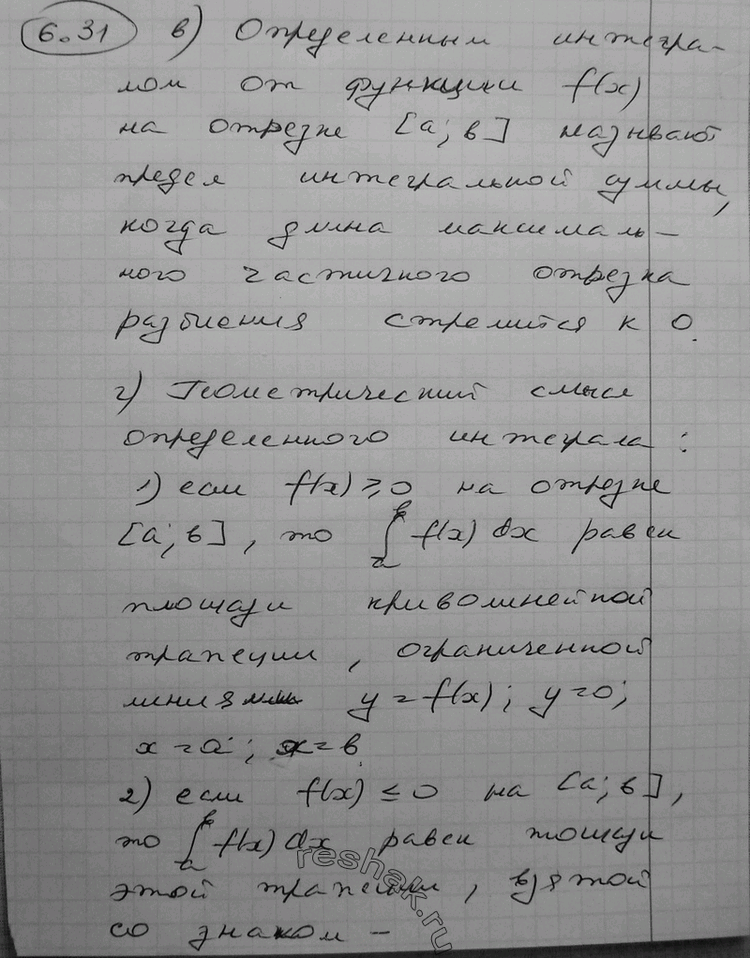 6.31 в) Определенным интегра-
лом от функции f(x)
на отрезке [a; в] называют
предел интегральной суммы,
когда длина максималь-
ного частичного отрезка
разбиения стремится к 0.
г) Геометрический смысл
определенного интеграла:
1) если f(x) ≥ 0 на отрезке
[a; в], то ∫ₐᵇ f(x) dx равен
площади криволинейной
трапеции, ограниченной
линиями y = f(x); y=0;
x = a; x = в
2) если f(x) ≤ 0 на [a; в],
то ∫ₐᵇ f(x) dx равен площади
этой трапеции, взятой
со знаком –
reshak.ru